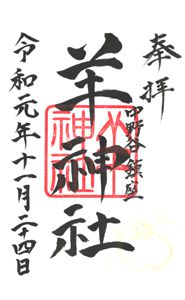 奉拝
中野谷鎮座
羊神社
羊神社
令和元年十一月二十四日